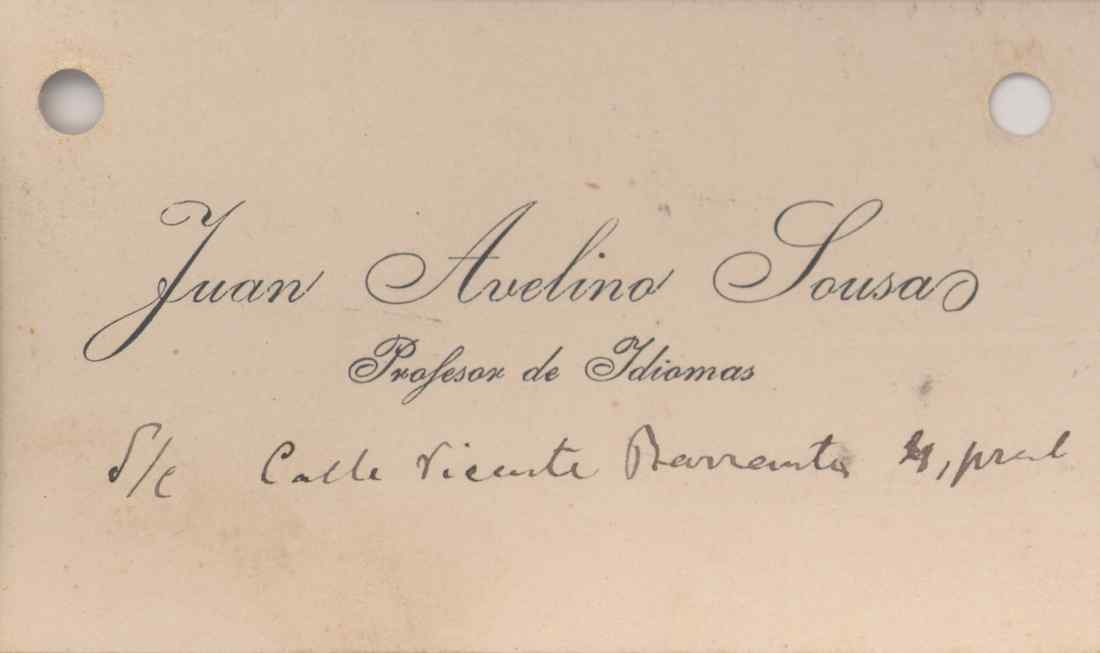 Juan Avelino Sousa
Profesor de Idiomas
S/c Calle Vicente Barrantes 4, pral